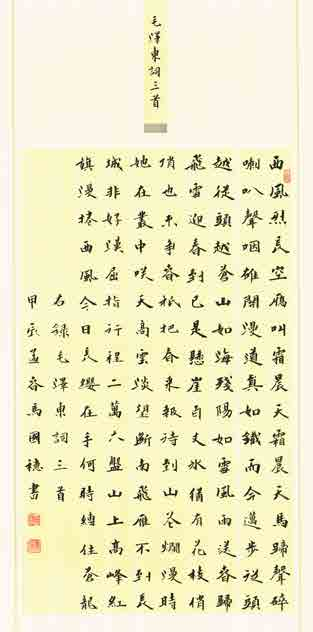 毛澤東詞三首
西風烈長空雁叫霜晨天霜晨天馬蹄聲碎
喇叭聲咽雄關漫道真如鐵而今邁步從頭
越從頭越蒼山如海殘陽如雪風雨送春歸
飛雪迎春到已是懸崖百丈冰猶有花枝俏
俏也不爭春祇把春來報待到山花爛漫時
她在叢中咲天高雲淡望斷南飛雁不到長
城非好漢屈指行程二萬六盤山上高峰紅
旗漫捲西風今日長纓在手何時縛住蒼龍
右錄毛澤東詞三首
甲孟春馬國穗書